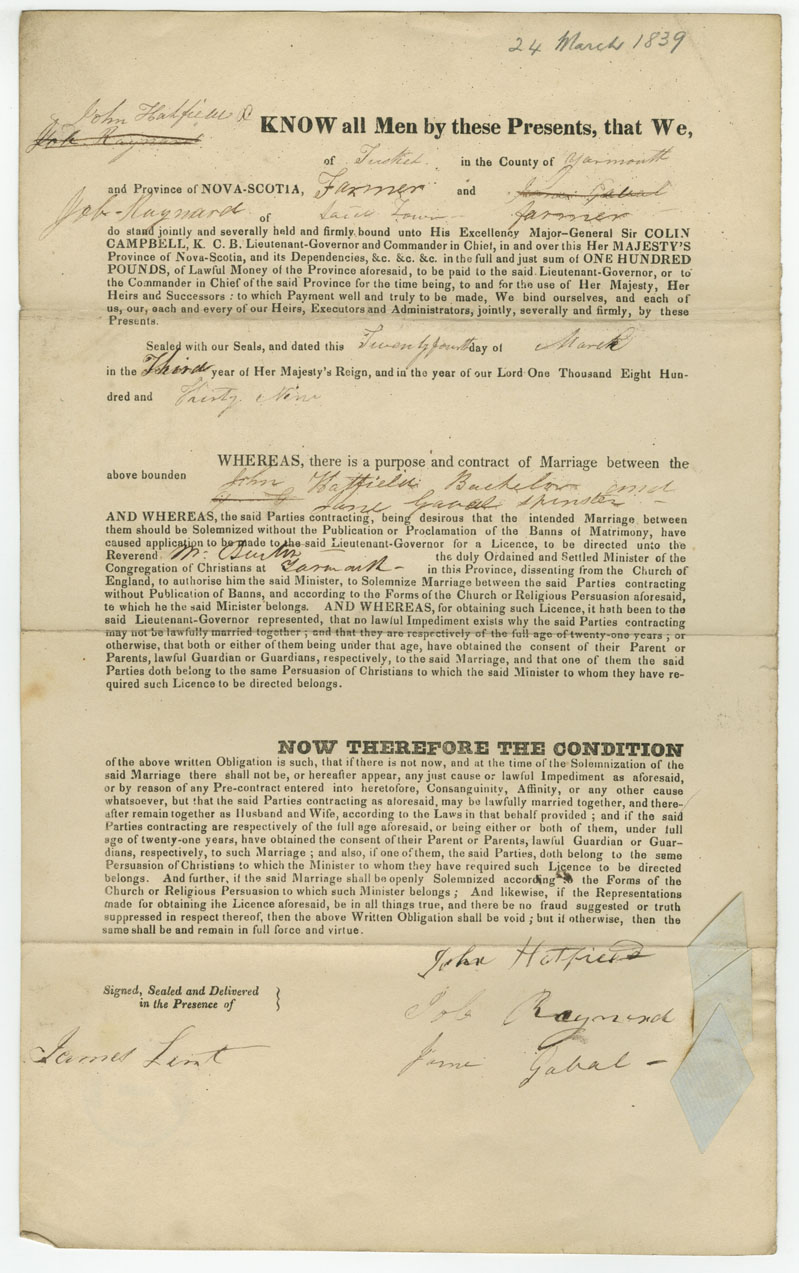 24 March 1839
John Hatfield &
Job Raynard
KNOW all Men by these Presents, that We,
of Tusket in the County of Yarmouth
and Province of NOVA-SCOTIA, Farmer and Jane Gabal
Job Raynard of said Town farmer
do stand jointly and severally held and firmly bound unto His Excellency Major-General Sir COLIN
CAMPBELL, K. C. B. Lieutenant-Governor and Commander in Chief, in and over this Her MAJESTY'S
Province of Nova-Scotia, and its Dependencies, &c. &c. &c. in the full and just sum of ONE HUNDRED
POUNDS, of Lawful Money of the Province aforesaid, to be paid to the said Lieutenant-Governor, or to
the Commander in Chief of the said Province for the time being, to and for the use of Her Majesty, Her
Heirs and Successors : to which Payment well and truly to be made, We bind ourselves, and each of
us, our, each and every of our Heirs, Executors and Administrators, jointly, severally and firmly, by these
Presents.
Sealed with our Seals, and dated this Twenty fourth day of March
in the Third year of Her Majesty's Reign, and in the year of our Lord One Thousand Eight Hun-
dred and Thirty Nine
WHEREAS, there is a purpose and contract of Marriage between the
above bounden John Hatfield Bachelor and
Jane Gabal Spinster
AND WHEREAS, the said Parties contracting, being desirous that the intended Marriage between
them should be Solemnized without the Publication or Proclamation of the Banns of Matrimony, have
caused application to be made to the said Lieutenant-Governor for a Licence, to be directed unto the
Reverend Mr. the duly Ordained and Settled Minister of the
Congregation of Christians at Yarmouth - in this Province, dissenting from the Church of
England, to authorise him the said Minister, to Solemnize Marriage between the said Parties contracting
without Publication of Banns, and according to the Forms of the Church or Religious Persuasion aforesaid,
to which he the said Minister belongs. AND WHEREAS, for obtaining such Licence, it hath been to the
said Lieutenant-Governor represented, that no lawful Impediment exists why the said Parties contracting
may not be lawfully married together ; and that they are respectively of the full age of twenty-one years ; or
otherwise, that both or either of them being under that age, have obtained the consent of their Parent or
Parents, lawful Guardian or Guardians, respectively, to the said Marriage, and that one of them the said
Parties doth belong to the same Persuasion of Christians to which the said Minister to whom they have re-
quired such Licence to be directed belongs.
NOW THEREFORE THE CONDITION
of the above written Obligation is such, that if there is not now, and at the time of the Solemnization of the
said Marriage there shall not be, or hereafter appear, any just cause or lawful Impediment as aforesaid,
or by reason of any Pre-contract entered into heretofore, Consanguinity, Affinity, or any other cause
whatsoever, but that the said Parties contracting as aforesaid, may be lawfully married together, and there-
after remain together as Husband and Wife, according to the Laws in that behalf provided ; and if the said
Parties contracting are respectively of the full age aforesaid, or being either or both of them, under full
age of twenty-one years, have obtained the consent of their Parent or Parents, lawful Guardian or Guar-
dians, respectively, to such Marriage ; and also, if one of them, the said Parties, doth belong to the same
Persuasion of Christians to which the Minister to whom they have required such Licence to be directed
belongs. And further, if the said Marriage shall be openly Solemnized according to the Forms of the
Church or Religious Persuasion to which such Minister belongs ; And likewise, if the Representations
made for obtaining the Licence aforesaid, be in all things true, and there be no fraud suggested or truth
suppressed in respect thereof, then the above Written Obligation shall be void ; but if otherwise, then the
same shall be and remain in full force and virtue.
John Hatfield
Signed, Sealed and Delivered
in the Presence of
Job Raynard
James Lent
Jane Gabal -